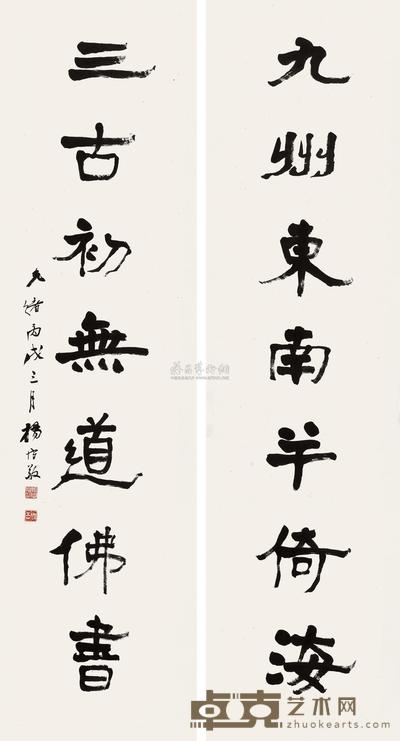 九州東南半倚海
三古初無道佛書
光緒丙戌三月楊守敬
卓克艺术网
zhuokearts.com